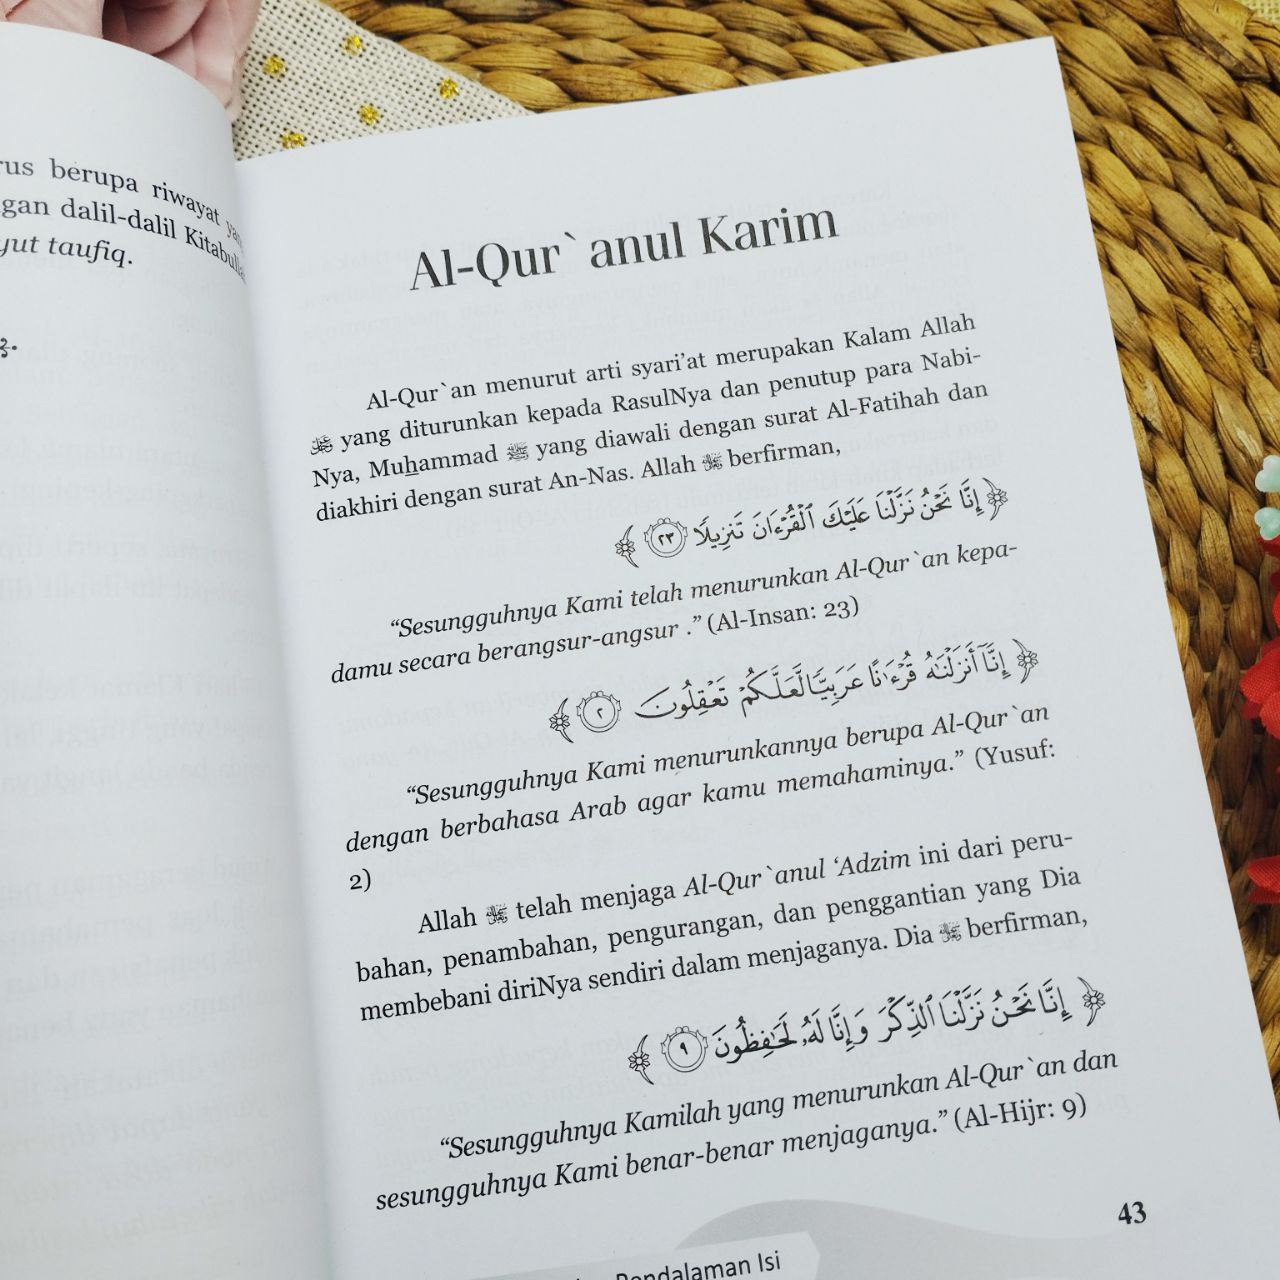 rus berupa riwayat
gan dalil-dalil Kitabulla
yut taufiq.
Al-Qur`anul Karim
Al-Qur`an menurut arti syari’at merupakan Kalam Allah
ﷻ yang diturunkan kepada RasulNya dan penutup para Nabi-
Nya, Muhammad ﷺ yang diawali dengan surat Al-Fatihah dan
diakhiri dengan surat An-Nas. Allah ﷻ berfirman,
﴿ إِنَّا نَحْنُ نَزَّلْنَا عَلَيْكَ ٱلْقُرْءَانَ تَنزِيلًا ٢٣ ﴾
“Sesungguhnya Kami telah menurunkan Al-Qur`an kepa-
damu secara berangsur-angsur .” (Al-Insan: 23)
﴿ إِنَّآ أَنزَلْنَٰهُ قُرْءَٰنًا عَرَبِيًّا لَّعَلَّكُمْ تَعْقِلُونَ ٢ ﴾
“Sesungguhnya Kami menurunkannya berupa Al-Qur`an
dengan berbahasa Arab agar kamu memahaminya.” (Yusuf:
2)
Allah ﷻ telah menjaga Al-Qur`anul ‘Adzim ini dari peru-
bahan, penambahan, pengurangan, dan penggantian yang Dia
membebani diriNya sendiri dalam menjaganya. Dia ﷻ berfirman,
﴿ إِنَّا نَحْنُ نَزَّلْنَا ٱلذِّكْرَ وَإِنَّا لَهُۥ لَحَٰفِظُونَ ٩ ﴾
“Sesungguhnya Kamilah yang menurunkan Al-Qur`an dan
sesungguhnya Kami benar-benar menjaganya.” (Al-Hijr: 9)
43
Pendalaman Isi